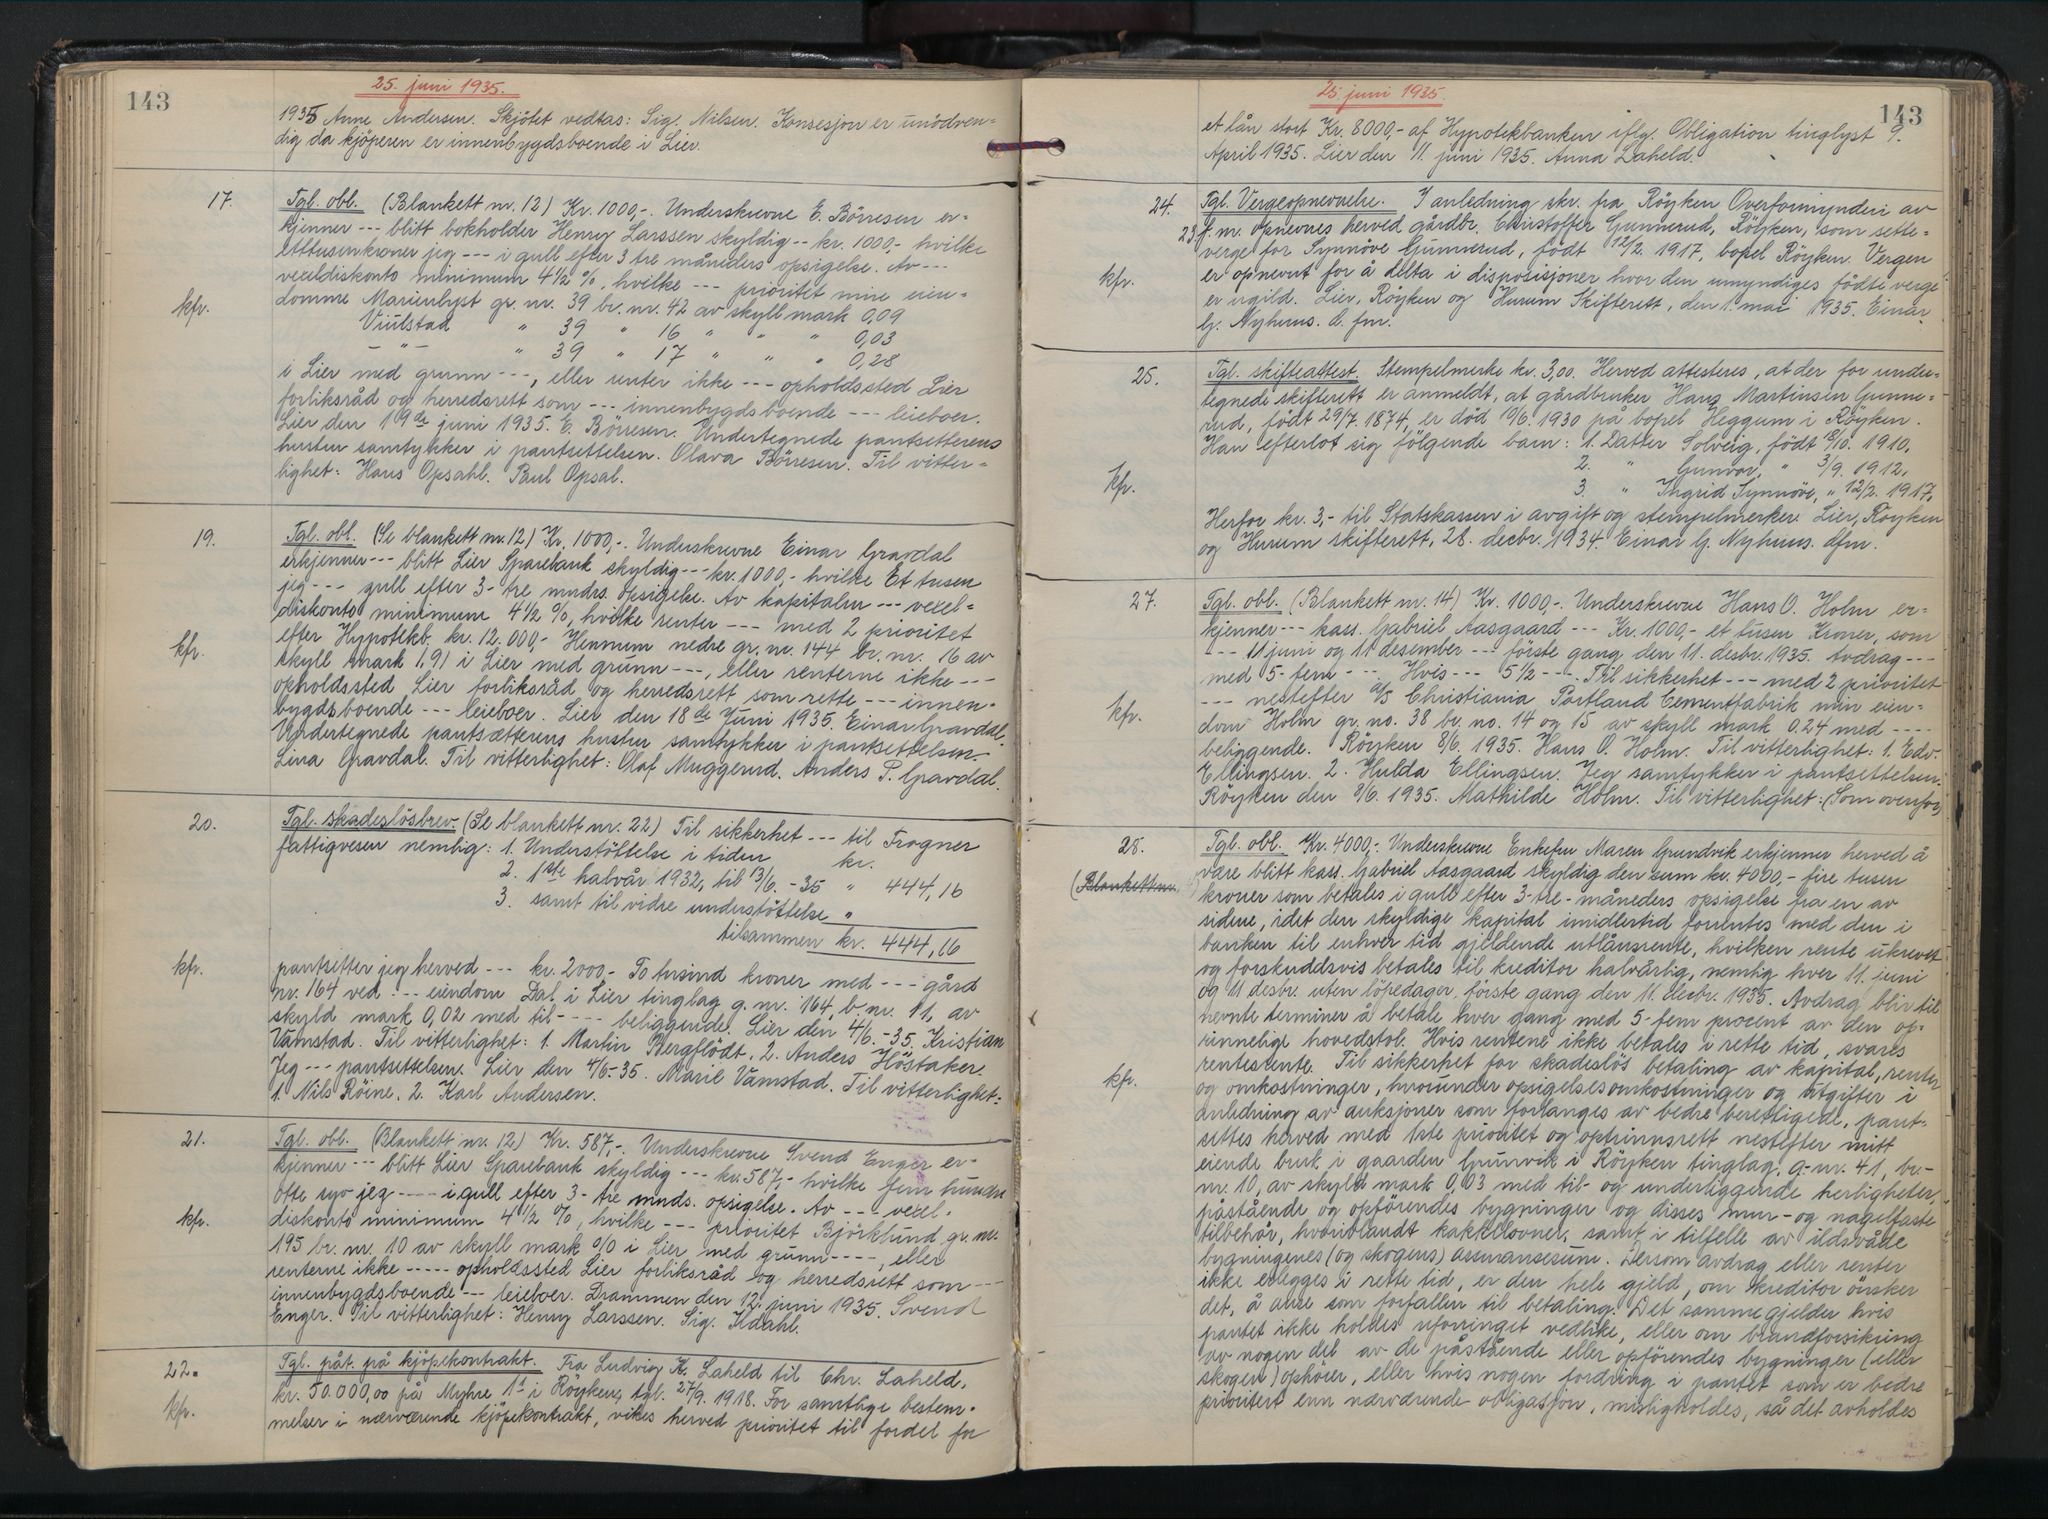 143
25. juni 1935.
1935 Anne Andersen. Skjötet vedtas: Sig. Nilsen. Konsesjon er unödven-
dig da kjöperen er innenbygdsboende i Lier.
17.
Tgl. obl. (Blankett nr. 12) Kr. 1000,-. Underskrevne E. Börresen er-
kjenner --- blitt bokholder Henry Larssen skyldig -- kr. 1000,- hvilke
ettusenkroner jeg --- i gull efter 3 tre måneders opsigelse. Av ---
vexeldiskonto minimum 4 1/2 %, hvilke --- prioritet mine eien-
kfr.
domme Marienlyst gr. nr. 39 br. nr. 42 av skyll mark 0,09
Viulstad " 39 " 16 " " " 0,03
- " - " 39 " 17 " " " 0,28
i Lier med grunn ---, eller renter ikke --- opholdssted Lier
forliksråd og herredsrett som --- innenbygdsboende --- leieboer.
Lier den 19de juni 1935. E. Börresen. Undertegnede pantsetterens
hustru samtykker i pantsettelsen. Olava Börresen. Til vitter-
lighet: Hans Opsahl. Paul Opsal.
19.
Tgl. obl. (Se blankett nr. 12) Kr. 1000,-. Underskrevne Einar Gravdal
erkjenner --- blitt Lier Sparebank skyldig --- kr. 1000,- hvilke Et tusen
jeg --- gull efter 3- tre mndrs. opsigelse. Av kapitalen --- vexel-
diskonto minimum 4 1/2 %, hvilke renter --- med 2 prioritet
efter Hypotekb. kr. 12.000,- Hennum nedre gr. nr. 144 br. nr. 16 av
kfr.
skyll mark 1,91 i Lier med grunn ---, eller renterne ikke ---
opholdssted Lier forliksråd og herredsrett som rette --- innen-
bygdsboende --- leieboer. Lier den 18de Juni 1935. Einar Gravdal.
Undertegnede pantsætterens hustru samtykker i pantsettelsen.
Lina Gravdal. Til vitterlighet: Olaf Muggerud. Anders P. Gravdal.
20.
Tgl. skadeslösbrev. (Se blankett nr. 22) Til sikkerhet --- til Frogner
fattigvesen nemlig: 1. Understöttelse i tiden kr.
2. 1ste halvår 1932, til 13/6. -35 " 444,16
3. samt til vidre understöttelse "
tilsammen kr. 444,16
kfr.
pantsetter jeg herved --- kr. 2000- To tusind kroner med --- gård
nr. 164 ved --- eiendom Dal i Lier tinglag g. nr. 164, b. nr. 11, av
skyld mark 0,02 med til- --- beliggende. Lier den 4/6. -35. Kristian
Vamstad. Til vitterlighet: 1. Martin Bergflödt. 2. Anders Höstaker.
Jeg --- pantsettelsen. Lier den 4/6.-35. Marie Vamstad. Til vitterlighet:
1. Nils Röine. 2. Karl Andersen.
21.
Tgl. obl. (Blankett nr. 12) Kr. 587,-. Underskrevne Svend Enger er-
kjenner --- blitt Lier Sparebank skyldig --- kr. 587,- hvilke fem hundre
otte syv jeg --- i gull efter 3- tre mnds. opsigelse. Av --- vexel-
kfr.
diskonto minimum 4 1/2 %, hvilke --- prioritet Björklund gr. nr.
195 br. nr. 10 av skyll mark 0/0 i Lier med grunn ----, eller
renterne ikke ----- opholdssted Lier forliksråd og herredsrett som ---
innenbygdsboende --- leieboer. Drammen den 12. juni 1935. Svend
Enger. Til vitterlighet: Henry Larssen. Sig. Kldahl.
22.
Tgl. påt. på kjöpekontrakt. Fra Ludvig K. Laheld til Chr. Laheld,
kfr.
kr. 50.000,00 på Myhre 1 i Röyken, tgl. 27/9. 1918. For samtlige bestem-
melser i nærværende kjöpekontrakt, vikes herved prioritet til fordel for
143
25. juni 1935.
et lån stort Kr. 8000,- af Hypotekbanken iflg. Obligation tinglyst 9.
April 1935. Lier den 11. juni 1935. Anna Laheld.
24.
Tgl. Vergeopnevnelse. I anledning skr. fra Röyken Overformynderi av
23. f. nr. opnevnes herved gårdbr. Christoffer Gunnerud, Röyken, som sette-
verge for Synnöve Gunnerud, födt 12/2. 1917, bopel Röyken. Vergen
kfr.
er opnevnt for å delta i disposisjoner hvor den umyndiges födte verge
er ugild. Lier, Röyken og Hurum Skifterett, den 1. mai 1935. Einar
G. Nyhuus. b. fm.
25.
Tgl. skifteattest. Stempelmerke kr. 3,00. Herved attesteres, at der for under-
tegnede skifterett er anmeldt, at gårdbruker Hans Martinsen Gunne-
rud, födt 29/7. 1874, er död 10/6. 1930 på bopel Heggum i Röyken.
Han efterlot sig fölgende barn: 1. Datter Solveig, födt 8/10. 1910,
2. " Gunvor, " 3/9. 1912.
kfr.
3. " Ingrid Synnöve, " 12/2. 1917.
Herfor kr. 3,- til Statskassen i avgift og stempelmerker. Lier, Röyken
og Hurum skifterett, 28. decbr. 1934. Einar G. Nyhuus. dfm.
27.
Tgl. obl. (Blankett nr. 14) Kr. 1000,-. Underskrevne Hans O. Holm er-
kjenner --- kass. Gabriel Aasgaard --- Kr. 1000,- et tusen Kroner, som
--- 11 juni og 11 desember --- förste gang den 11. desbr. 1935. Avdrag ---
med 5- fem --- Hvis --- 5 1/2 --- Til sikkerhet --- med 2 prioritet
kfr.
--- nestefter A/S Christiania Portland Cementfabrik min eien-
dom Holm gr. no. 38 br. no. 14 og 15 av skyll mark 0.24 med ----
beliggende. Röyken 8/6. 1935. Hans O. Holm. Til vitterlighet: 1. Edv.
Ellingsen. 2. Hulda Ellingsen. Jeg samtykker i pantsettelsen.
Röyken den 8/6. 1935. Mathilde Holm. Til vitterlighet: (Som ovenfor)
28.
Tgl. obl. Kr. 4000,-. Underskrevne Enkefru Maren Grundvik erkjenner herved å
(Blankett nr.
være blitt kass. Gabriel Aasgaard skyldig den sum kr. 4000,- fire tusen
kroner som betales i gull efter 3- tre - måneders opsigelse fra en av
sidene, idet den skyldige kapital imidlertid forrentes med den i
banken til enhver tid gjeldende utlånsrente, hvilken rente ukrevet
og forskuddsvis betales til kreditor halvårlig, nemlig hver 11. juni
og 11 desbr. uten löpedager, förste gang den 11. decbr. 1935. Avdrag blir til
nevnte terminer å betale hver gang med 5- fem procent av den op-
rinnelige hovedstol. Hvis rentene ikke betales i rette tid, svares
rentesrente. Til sikkerhet for skadeslös betaling av kapital, renter
kfr.
og omkostninger, herunder opsigelsesomkostninger og utgifter i
anledning av auksjoner som forlanges av bedre berettigede, pant-
settes herved med 1ste prioritet og optrinnsrett nestefter mitt
eiende bruk i gaarden Gunvik i Röyken tinglag, g.-nr. 41, br.-
nr. 10, av skyld mark 0,03 med til- og underliggende herligheter,
påstående og opförendes bygninger og disses mur- og nagelfaste
tilbehör, hvoriblandt kakkelovner, samt i tilfelle av ildsvåde
bygningenes (og skogens) assuransesum. Dersom avdrag eller renter
ikke erlegges i rette tid, er den hele gjeld, om kreditor önsker
det, å anse som forfallen til betaling. Det samme gjelder hvis
pantet ikke holdes uforringet vedlike, eller om brandforsikring
av nogen del av de påstående eller opförendes bygninger (eller
skogen) ophörer, eller hvis nogen fordring i pantet som er bedre
prioritert enn nærværende obligasjon, misligholdes, så det avholdes